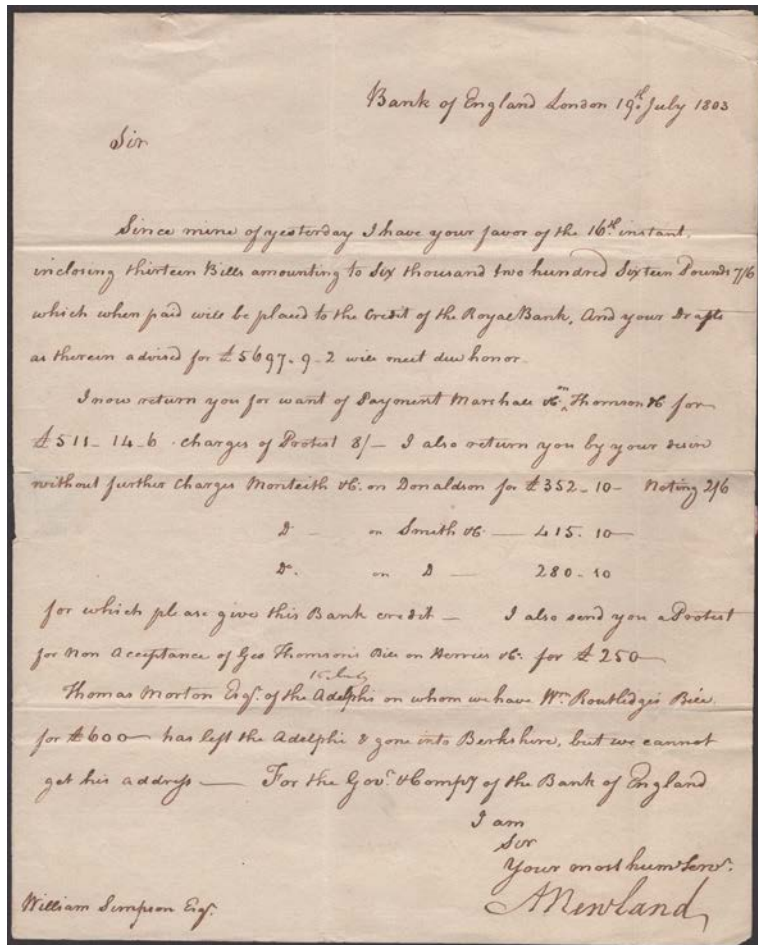 Bank of England London 19th July 1803
Sir
Since mine of yesterday I have your favor of the 16th instant,
inclosing thirteen Bills amounting to Six thousand two hundred Sixteen Pounds 7/6
which when paid will be placed to the Credit of the Royal Bank, And your Drafts
as therein advised for £5697.9.2 will meet due honor.
I now return you for want of Payment Marshall &c. on Thomson &c for
£511-14-6. charges of Protest 8/- I also return you by your desire
without further Charges Monteith &c. on Donaldson for £352-10- Noting 2/6
Do — on Smith &c. — 415.10—
Do. on D — 280-10
for which please give this Bank credit — I also send you a Protest
for Non Acceptance of Geo Thomson's Bill on Herries &c. for £250—
15 July
Thomas Morton Esqr. of the Adelphi on whom we have Wm. Routledge's Bill
for £600— has left the Adelphi & gone into Berkshire, but we cannot
get his address — For the Govr. & Compy of the Bank of England
I am
Sir
Your most humb Servt.
William Simpson Esqr.
A Newland